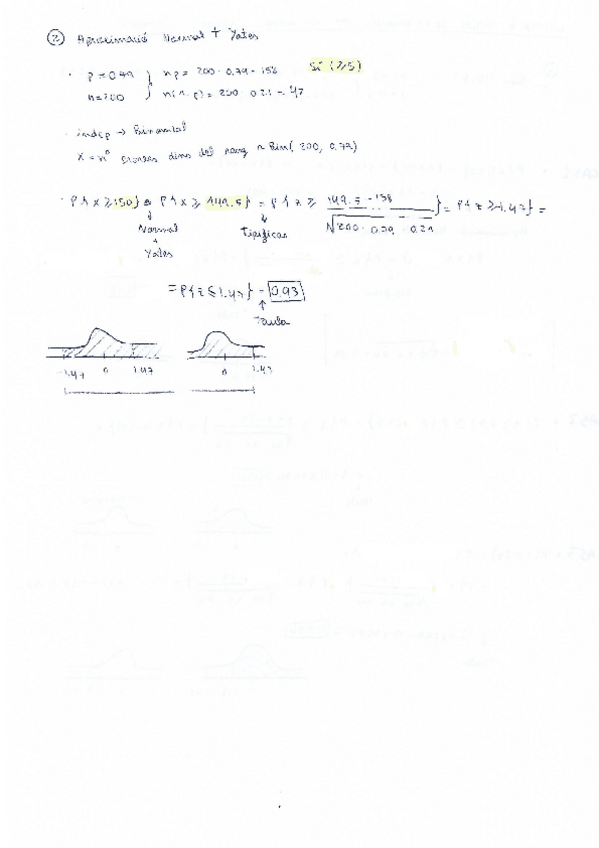 ② Aproximació Normal + Yates
· p = 0.79 } np = 200 · 0.79 = 158 Sí (≥5)
n = 200 } n(1-p) = 200 · 0.21 = 42
· indep → Binomial
X = nº dins del rang ~ Bin(200, 0.79)
· P{X ≥ 150} ≈ P{X ≥ 149.5} = P{Z ≥ 149.5 - 158 / √200 · 0.79 · 0.21} = P{Z ≥ -1.47} =
↓ Normal + Yates
↓ Tipificar
= P{Z ≤ 1.47} = 0.93
↑ Taula
-1.47 0 1.47 0 1.47